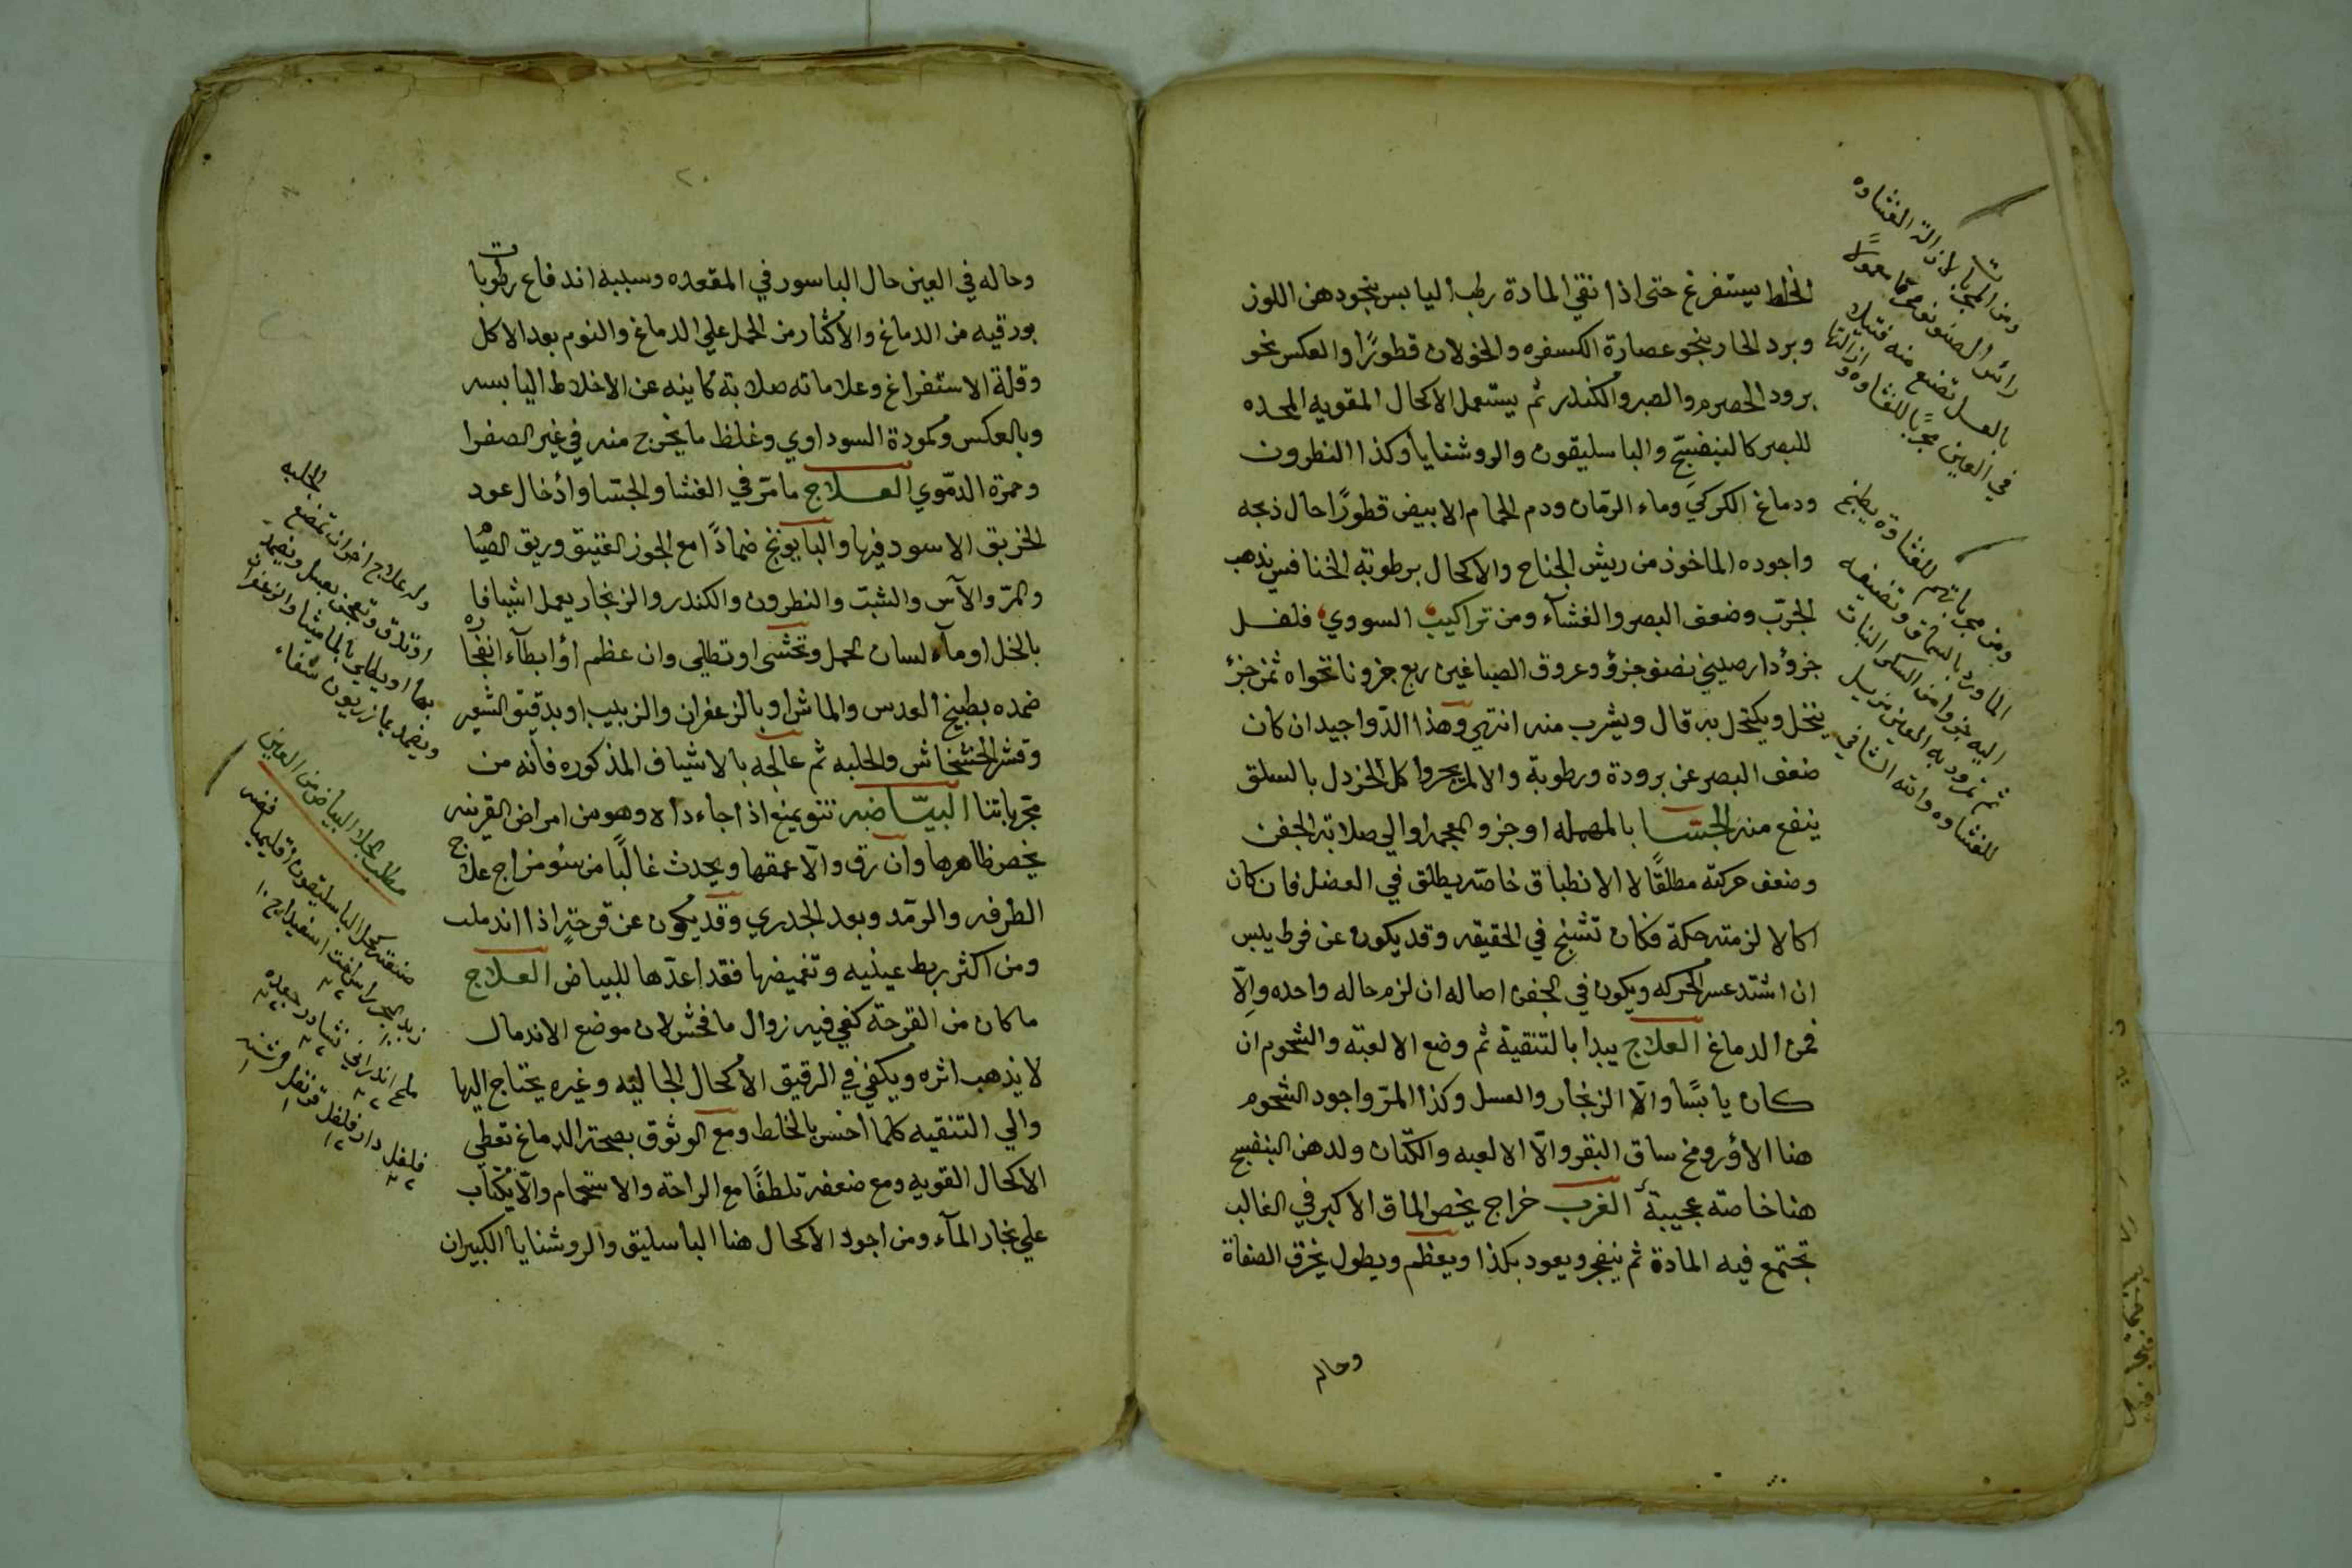 الخلط يستفرغ حتى اذا نقي المادة رطب اليابس بنحو دهن اللوز
وبرد الحار بنحو عصارة الكسفره والخولان قطورًا والعكس نحو
برود الحصرم والصبر والكندر ثم يستعمل الاكحال المقويه المحده
للبصر كالبنفسج والباسليقون والروشنايا وكذا النطرون
ودماغ الكركي وماء الرمّان ودم الحمام الابيض قطورًا حال ذبحه
واجوده الماخوذ من ريش الجناح والاكحال برطوبة الخنافس يذهب
الجرب وضعف البصر والغشآء ومن تراكيب السويدي فلفل
جزؤ دارصيني نصف جزؤ وعروق الصباغين ربع جزو نانخواه ثمن جزؤ
ينخل ويكتحل به قال ويشرب منه انتهي وهذا الدّوا جيد ان كان
ضعف البصر عن برودة ورطوبة والا لم يجز واكل الخردل بالسلق
ينفع منه الجسا بالمهمله اوجز والمعجمه اوالي صلابة الجفن
وضعف حركته مطلقًا لا الانطباق خاصّة يطلق في العضل فان كان
اكالا لزمته حكة فكان تشنج في الحقيقه وقد يكون عن فرط يبس
ان اشتد عسر الحركه ويكون في الجفن اصاله ان لزم حاله واحده والّا
فمن الدماغ العلاج يبدا بالتنقية ثم وضع الالعبة والشحوم ان
كان يابسًا والّا الزنجار والعسل وكذا المرّ واجود الشحوم
هنا الاؤز ومخ ساق البقر والّا الالعبه والكتّان ولدهن البنفسج
هنا خاصة عجيبة الغرب خراج يخص الماق الاكبر في الغالب
تجتمع فيه المادة ثم ينفجر ويعود بكذا ويعظم ويطول يخرق الصفاة
وحاله
ومن المجربات لازالة الغشاوه
بالعسل تصنع منه فتيله
في العين مجربًا للغشاوه وازالتها
ومن مجرباتهم للغشاوه يطبخ
الماورد بالسماق وتضيف
اليه جزوا من السكر النبات
ثم تزود به العين يزيل
للغشاوه والله الشافي
٢٠
وحاله في العين حال الباسور في المقعده وسببه اندفاع رطوبات
بورقيه من الدماغ والأكثار من الحمل علي الدماغ والنوم بعد الاكل
وقلة الاستفراغ وعلاماته صلابة كاينه عن الاخلاط اليابسه
وبالعكس وكمودة السوداوي وغلظ ما يخرج منه في غير الصفرا
وحمرة الدمّوي العلاج ما مرّ في الغشا والجسا وأدخال عود
الخربق الاسود فيها والبابونج ضمادًا مع الجوز العتيق وريق الصّيا
والمرّ والآس والشبت والنطرون والكندر والزنجار يعمل اشيافا
بالخل او مآء لسان الحمل وتحشي او تطلي وان عظم اوأبطآء انفجاره
ضمده بطبيخ العدس والماش او بالزعفران والزبيب او بدقيق الشعير
وقشر الخشخاش والحلبه ثم عالجه بالاشياف المذكوره فانه من
مجرّباتنا البيّاضه نتو يمنع اذا جاء داه وهو من امراض القرنيه
يخص ظاهرها وان رق والّا عمقها ويحدث غالبًا من سوء مزاج علاج
الطرفه والرمّد وبعد الجدري وقد يكون عن قرحةٍ اذا اندملت
ومن اكثر ربط عينيه وتغميضها فقد اعدّها للبياض العلاج
ما كان من القرحة كفي فيه زوال ما فحش لان موضع الاندمال
لا يذهب اثره ويكفي في الرقيق الأكحال الجاليه وغيره يحتاج اليها
والي التنقيه كلما أحسن بالخلط ومع الوثوق بصحة الدماغ تعطي
الاكحال القويه ومع ضعفه تلطفًا مع الراحة والاستحمام والّا يكتاب
علي بخار المآء ومن اجود الاكحال هنا الباسليق والروشنايا الكبيران
الحلبه
وله علاج اخر ان تمضغ
او تدق وتعجن بعسل ويضمد
بها او يطلي بالماميثا والزعفران
ويضمد بمازريون شفاء
مطلب لجلاء البياض من العين
صفة كحل الباسليقون اقليميا فضه
زبد البحر راسخت اسفيداج ١٠
ملح اندراني نشادر جعده
فلفل دارفلفل قرنفل